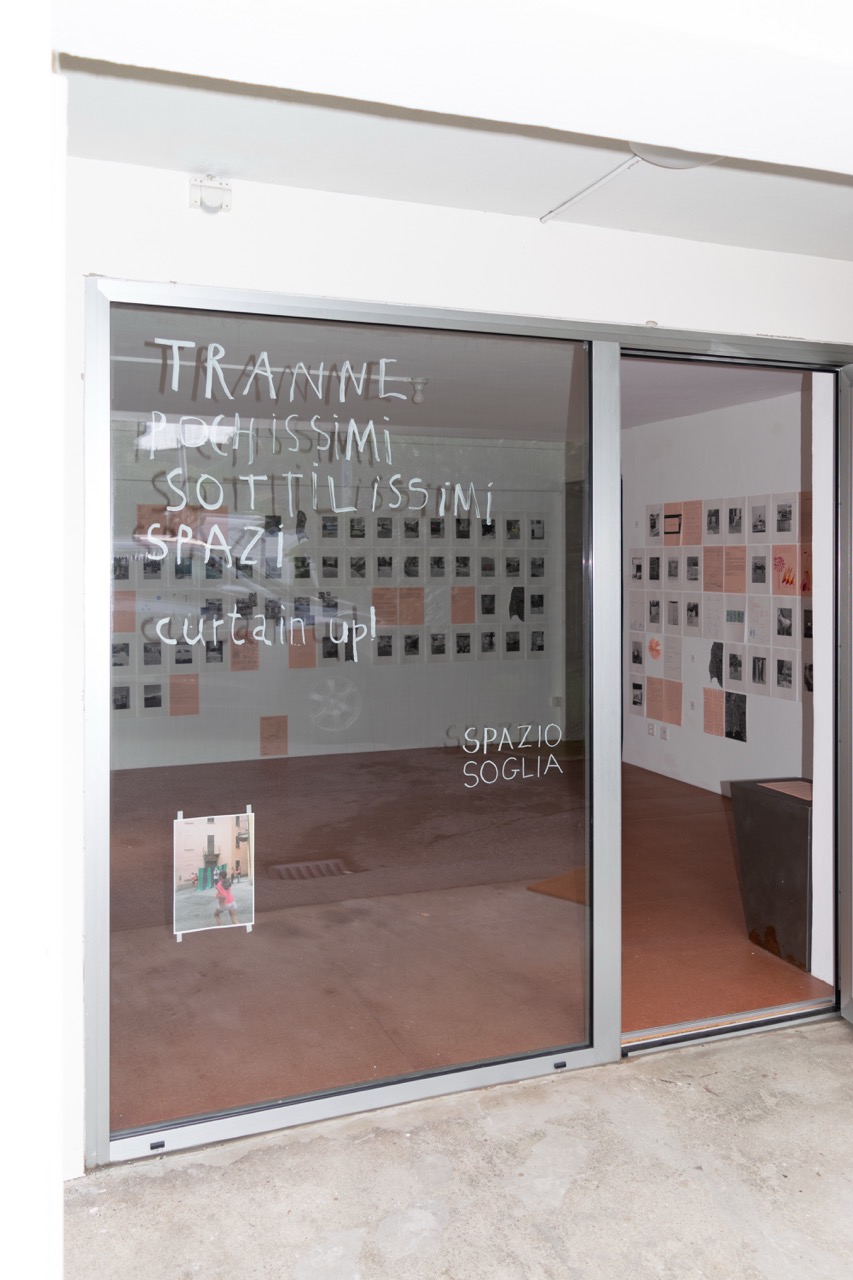 TRANNE
POCHISSIMI
SOTTILISSIMI
SPAZI
curtain up!
SPAZIO
SOGLIA